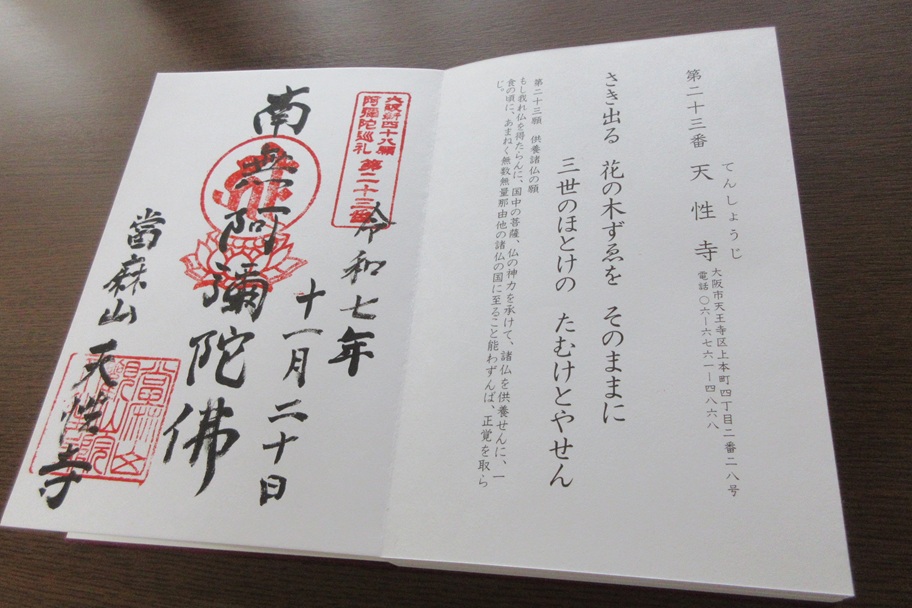 第二十三番 天性寺
てんしょうじ
大阪市天王寺区上本町四丁目二番二八号
電話 〇六―六七六一―四八六八
さき出る 花の木ずゑを そのままに
三世のほとけの たむけとやせん
第二十三願 供養諸仏の願
もし我れ仏を得たらんに、国中の菩薩、仏の神力を承けて、諸仏を供養せんに、一
食の頃に、あまねく無数無量那由他の諸仏の国に至ること能わずんば、正覚を取ら
じ。
大阪新四十八願
阿彌陀巡礼 第二十三番
令和七年
十一月二十日
南無阿彌陀佛
當麻山 天性寺